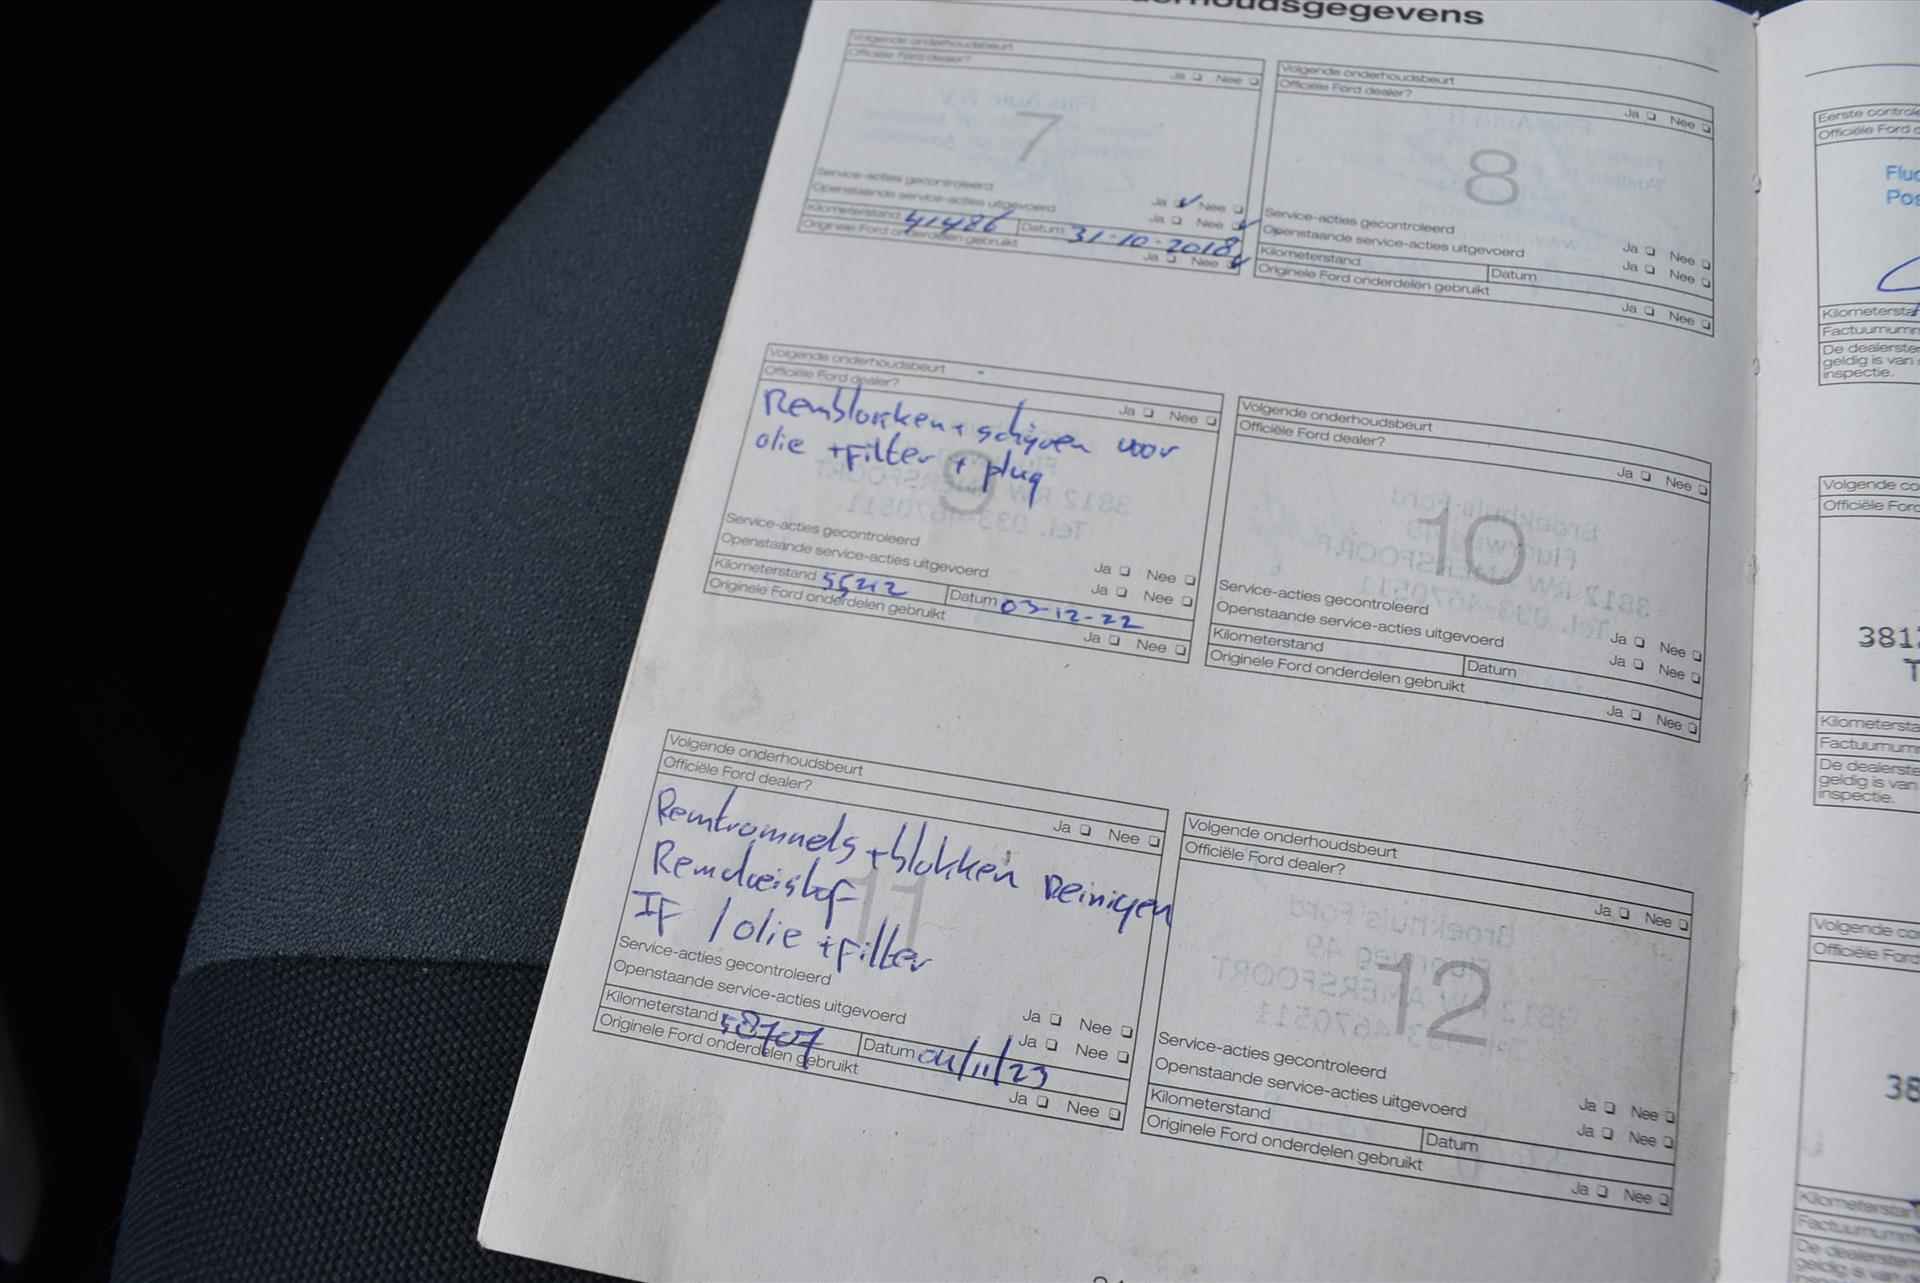 onderhoudsgegevens
Volgende onderhoudsbeurt
Officiële Ford dealer?
Ja ❏ Nee ❏
7
Service-acties gecontroleerd
Ja ✓ Nee ❏
Openstaande service-acties uitgevoerd
Ja ❏ Nee ✓
Kilometerstand 41486 Datum 31-10-2018
Originele Ford onderdelen gebruikt
Ja ❏ Nee ✓
Volgende onderhoudsbeurt
Officiële Ford dealer?
Ja ❏ Nee ❏
8
Service-acties gecontroleerd
Ja ❏ Nee ❏
Openstaande service-acties uitgevoerd
Ja ❏ Nee ❏
Kilometerstand Datum
Originele Ford onderdelen gebruikt
Ja ❏ Nee ❏
Volgende onderhoudsbeurt
Officiële Ford dealer?
Ja ❏ Nee ❏
Remblokken + schijven voor
olie + Filter + plug
9
Service-acties gecontroleerd
Ja ❏ Nee ❏
Openstaande service-acties uitgevoerd
Ja ❏ Nee ❏
Kilometerstand 55212 Datum 03-12-22
Originele Ford onderdelen gebruikt
Ja ❏ Nee ❏
Volgende onderhoudsbeurt
Officiële Ford dealer?
Ja ❏ Nee ❏
10
Service-acties gecontroleerd
Ja ❏ Nee ❏
Openstaande service-acties uitgevoerd
Ja ❏ Nee ❏
Kilometerstand Datum
Originele Ford onderdelen gebruikt
Ja ❏ Nee ❏
Volgende onderhoudsbeurt
Officiële Ford dealer?
Ja ❏ Nee ❏
Remtrommels + blokken Reinigen
11
IF / olie + Filter
Service-acties gecontroleerd
Ja ❏ Nee ❏
Openstaande service-acties uitgevoerd
Ja ❏ Nee ❏
Kilometerstand 58707 Datum 04/11/23
Originele Ford onderdelen gebruikt
Ja ❏ Nee ❏
Volgende onderhoudsbeurt
Officiële Ford dealer?
Ja ❏ Nee ❏
12
Service-acties gecontroleerd
Ja ❏ Nee ❏
Openstaande service-acties uitgevoerd
Ja ❏ Nee ❏
Kilometerstand Datum
Originele Ford onderdelen gebruikt
Ja ❏ Nee ❏
Eerste controle
Officiële Ford
Kilometersta
Factuurnum
De dealerste
geldig is van
inspectie.
Volgende co
Officiële Ford
Kilometersta
Factuurnum
De dealerste
geldig is van
inspectie.
Volgende co
Officiële Ford
38
Kilometerstan
Factuurnum
De dealerste
geldig is van